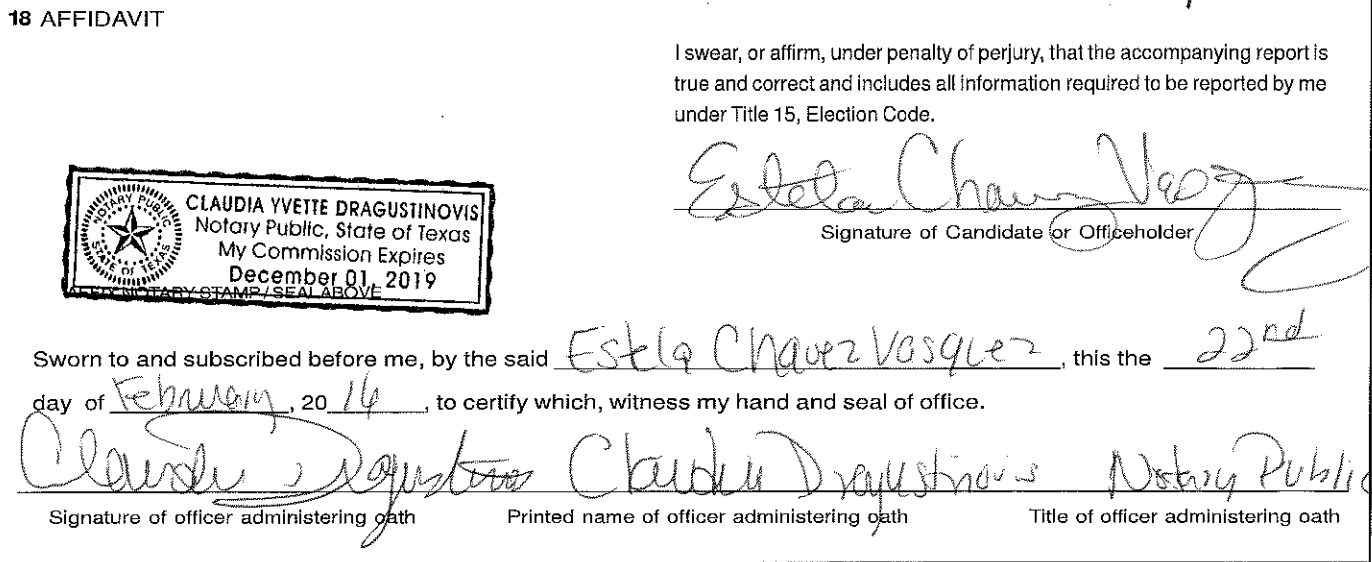 18 AFFIDAVIT
I swear, or affirm, under penalty of perjury, that the accompanying report is
true and correct and includes all information required to be reported by me
under Title 15, Election Code.
Estela Chavez Vasqz
Signature of Candidate or Officeholder
NOTARY PUBLIC
STATE OF TEXAS
CLAUDIA YVETTE DRAGUSTINOVIS
Notary Public, State of Texas
My Commission Expires
December 01, 2019
AFFIX NOTARY STAMP / SEAL ABOVE
Sworn to and subscribed before me, by the said Estela Chavez Vasquez, this the 22nd
day of February, 20 16, to certify which, witness my hand and seal of office.
Claudia Dragustinovis Claudia Dragustinovis Notary Public
Signature of officer administering oath Printed name of officer administering oath Title of officer administering oath